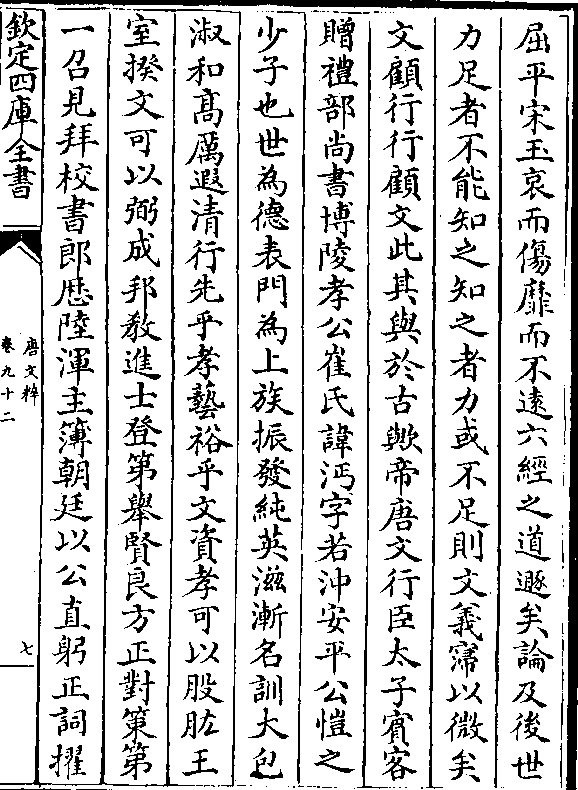 屈平宋玉哀而傷靡而不遠六經之道遯矣論及後世
力足者不能知之知之者力或不足則文義寖以微矣
文顧行行顧文此其與於古歟帝唐文行臣太子賓客
贈禮部尚書博陵孝公崔氏諱沔字若沖安平公愷之
少子也世為德表門為上族振發純英滋漸名訓大包
淑和髙厲遐清行先乎孝藝裕乎文資孝可以股肱王
室揆文可以弼成邦教進士登第舉賢良方正對策第
一召見拜校書郎歴陸渾主簿朝廷以公直躬正詞擢
欽定四庫全書
唐文粹
卷九十二
七